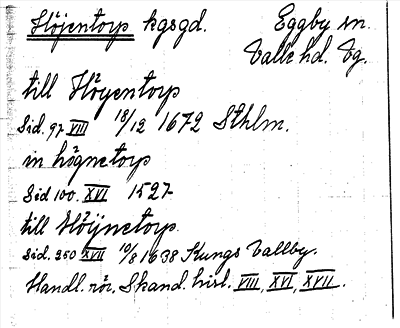 Höjentorp kgsgd. Eggby sn.
Valle hd. Vg.
till Höyentorp
Sid. 97 VIII 18/12 1672 Sthlm.
in högnetorp
Sid 100. XVI 1527
till Höÿnetorp
Sid. 250 XVII 10/8 1638 Kungs Vallby.
Handl. rör. Skand. hist. VIII, XVI, XVII.